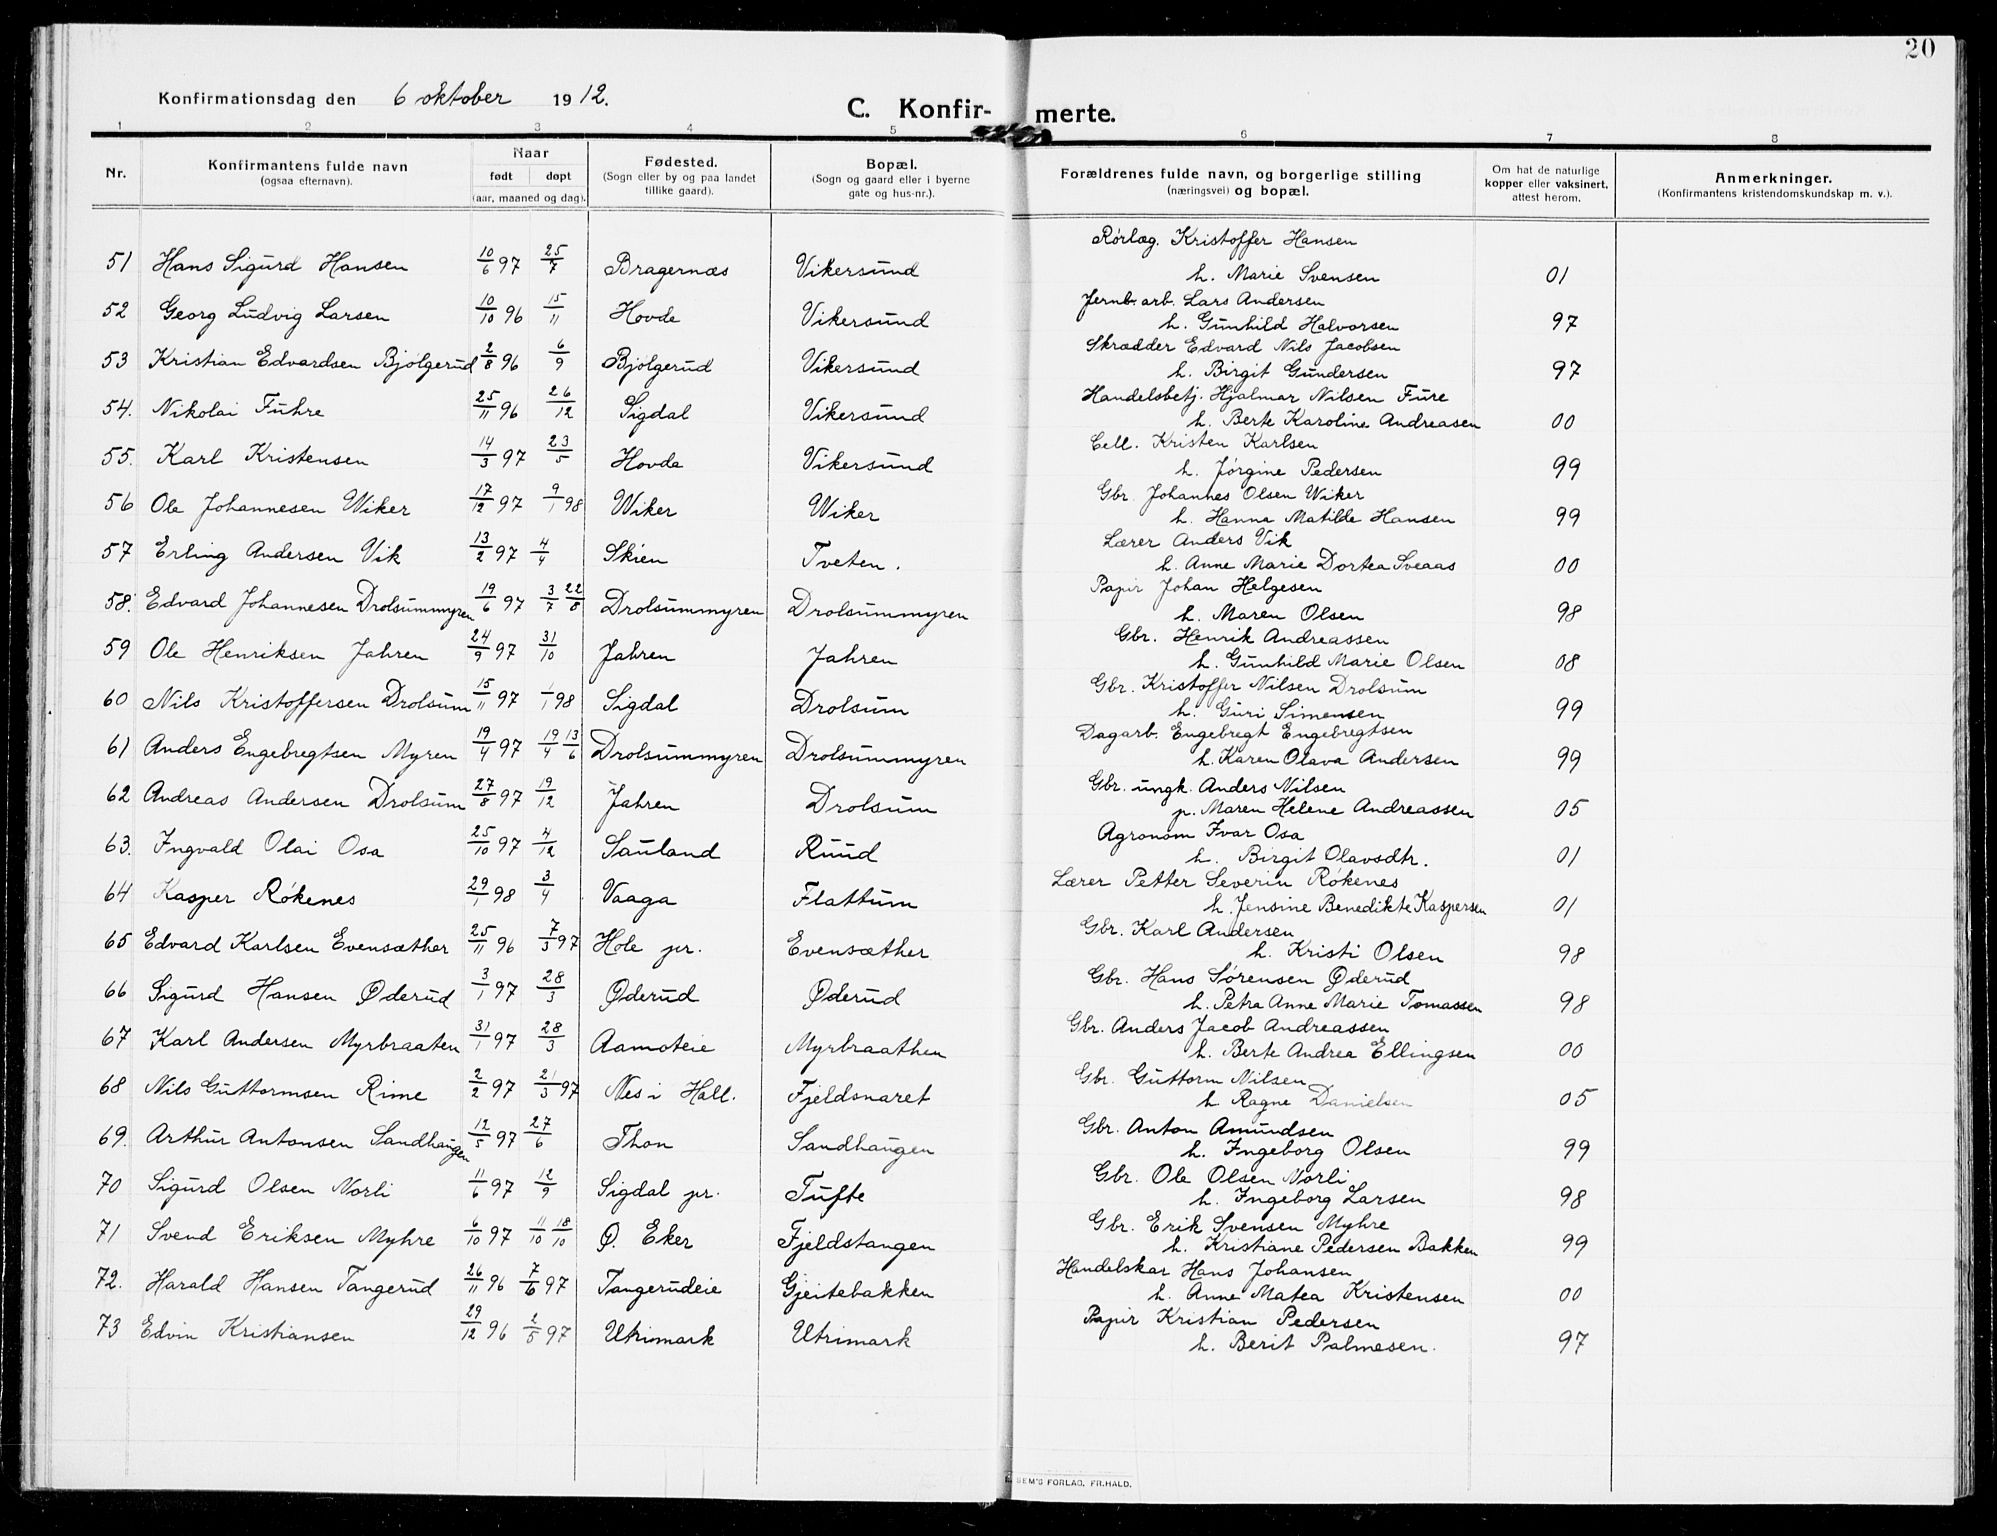 20
Konfirmationsdag den 6 oktober 1912.
C. Konfir- merte.
1 2 3 4 5 6 7 8
Nr. Konfirmantens fulde navn (ogsaa efternavn). Naar født døpt (aar, maaned og dag). Fødested. (Sogn eller by og paa landet tillike gaard). Bopæl. (Sogn og gaard eller i byerne gate og hus-nr.). Forældrenes fulde navn, og borgerlige stilling (næringsvei) og bopæl. Om hat de naturlige kopper eller vaksinert, attest herom. Anmerkninger. (Konfirmantens kristendomskundskap m. v.).
51 Hans Sigurd Hansen 10/6 97 25/7 Bragernæs Vikersund Rörlæg. Kristoffer Hansen
h. Marie Svensen 01
52 Georg Ludvig Larsen 10/10 96 15/11 Hovde Vikersund Jernb. arb. Lars Andersen
h. Gunhild Halvorsen 97
53 Kristian Edvardsen Bjölgerud 2/8 96 6/9 Bjölgerud Vikersund Skrædder Edvard Nils Jacobsen
h. Birgit Gundersen 97
54. Nikolai Fuhre 25/11 96 26/12 Sigdal Vikersund Handelsbetj. Hjalmar Nilsen Fure
h. Berte Karoline Andreasen 00
55. Karl Kristensen 14/3 97 23/5 Hovde Vikersund Cell. Kristen Karlsen
h. Jörgine Pedersen 99
56 Ole Johannesen Wiker 17/12 97 9/1 98 Wiker Wiker Gbr. Johannes Olsen Wiker
h. Hanna Matilde Hansen 99
57 Erling Andersen Vik 13/2 97 4/4 Skien Tveten. Lærer Anders Vik
h. Anne Marie Dortea Sveaas 00
58. Edvard Johannesen Drolsummyren 19/6 97 3/7 22/8 Drolsummyren Drolsummyren Papir Johan Helgesen
h. Maren Olsen 98
59 Ole Henriksen Jahren 24/9 97 31/10 Jahren Jahren Gbr. Henrik Andreassen
h. Gunhild Marie Olsen 08
60 Nils Kristoffersen Drolsum 15/11 97 1/1 98 Sigdal Drolsum Gbr. Kristoffer Nilsen Drolsum
h. Guri Simensen 99
61 Anders Engebregtsen Myren 19/4 97 19/4 13/6 Drolsummyren Drolsummyren Dagarb. Engebregt Engebregtsen
h. Karen Olava Andersen 99
62 Andreas Andersen Drolsum 27/8 97 19/12 Jahren Drolsum Gbr. ungk. Anders Nilsen
p. Maren Helene Andreassen 05
63. Ingvald Olai Osa 25/10 97 4/12 Sauland Ruud Agronom Ivar Osa
h. Birgit Olavsdtr. 01
64 Kasper Rökenes 29/1 98 3/4 Vaaga Flattum Lærer Petter Severin Rökenes
h. Jensine Benedikte Kaspersen 01
65 Edvard Karlsen Evensæther 25/11 96 7/3 97 Hole pr. Evensæther Gbr. Karl Andersen
h. Kristi Olsen 98
66 Sigurd Hansen Øderud 3/1 97 28/3 Øderud Øderud Gbr. Hans Sørensen Øderud
h. Petra Anne Marie Tomassen 98
67 Karl Andersen Myrbraaten 31/1 97 28/3 Aamoteie Myrbraathen Gbr. Anders Jacob Andreassen
h. Berte Andrea Ellingsen 00
68 Nils Guttormsen Rime 2/2 97 21/3 97 Nes i Hall. Fjeldsnaret Gbr. Guttorm Nilsen
h. Ragne Danielsen 05
69. Arthur Antonsen Sandhaugen 12/5 97 27/6 Thon Sandhaugen Gbr. Anton Amundsen
h. Ingeborg Olsen 99
70 Sigurd Olsen Norli 11/6 97 12/9 Sigdal pr. Tufte Gbr. Ole Olsen Norli
h. Ingeborg Larsen 98
71 Svend Eriksen Myhre 6/10 97 11/10 18/10 Ø. Eker Fjeldstangen Gbr. Erik Svensen Myhre
h. Kristiane Pedersen Bakken 99
72. Harald Hansen Tangerud 26/11 96 7/6 97 Tangerudeie Gjeitebakken Handelskar Hans Johansen
h. Anne Matea Kristensen 00
73 Edvin Kristiansen 29/12 96 2/5 97 Utrimark Utrimark Papir Kristian Pedersen
h. Berit Palmesen. 97
SEM'S FORLAG, FR.HALD.